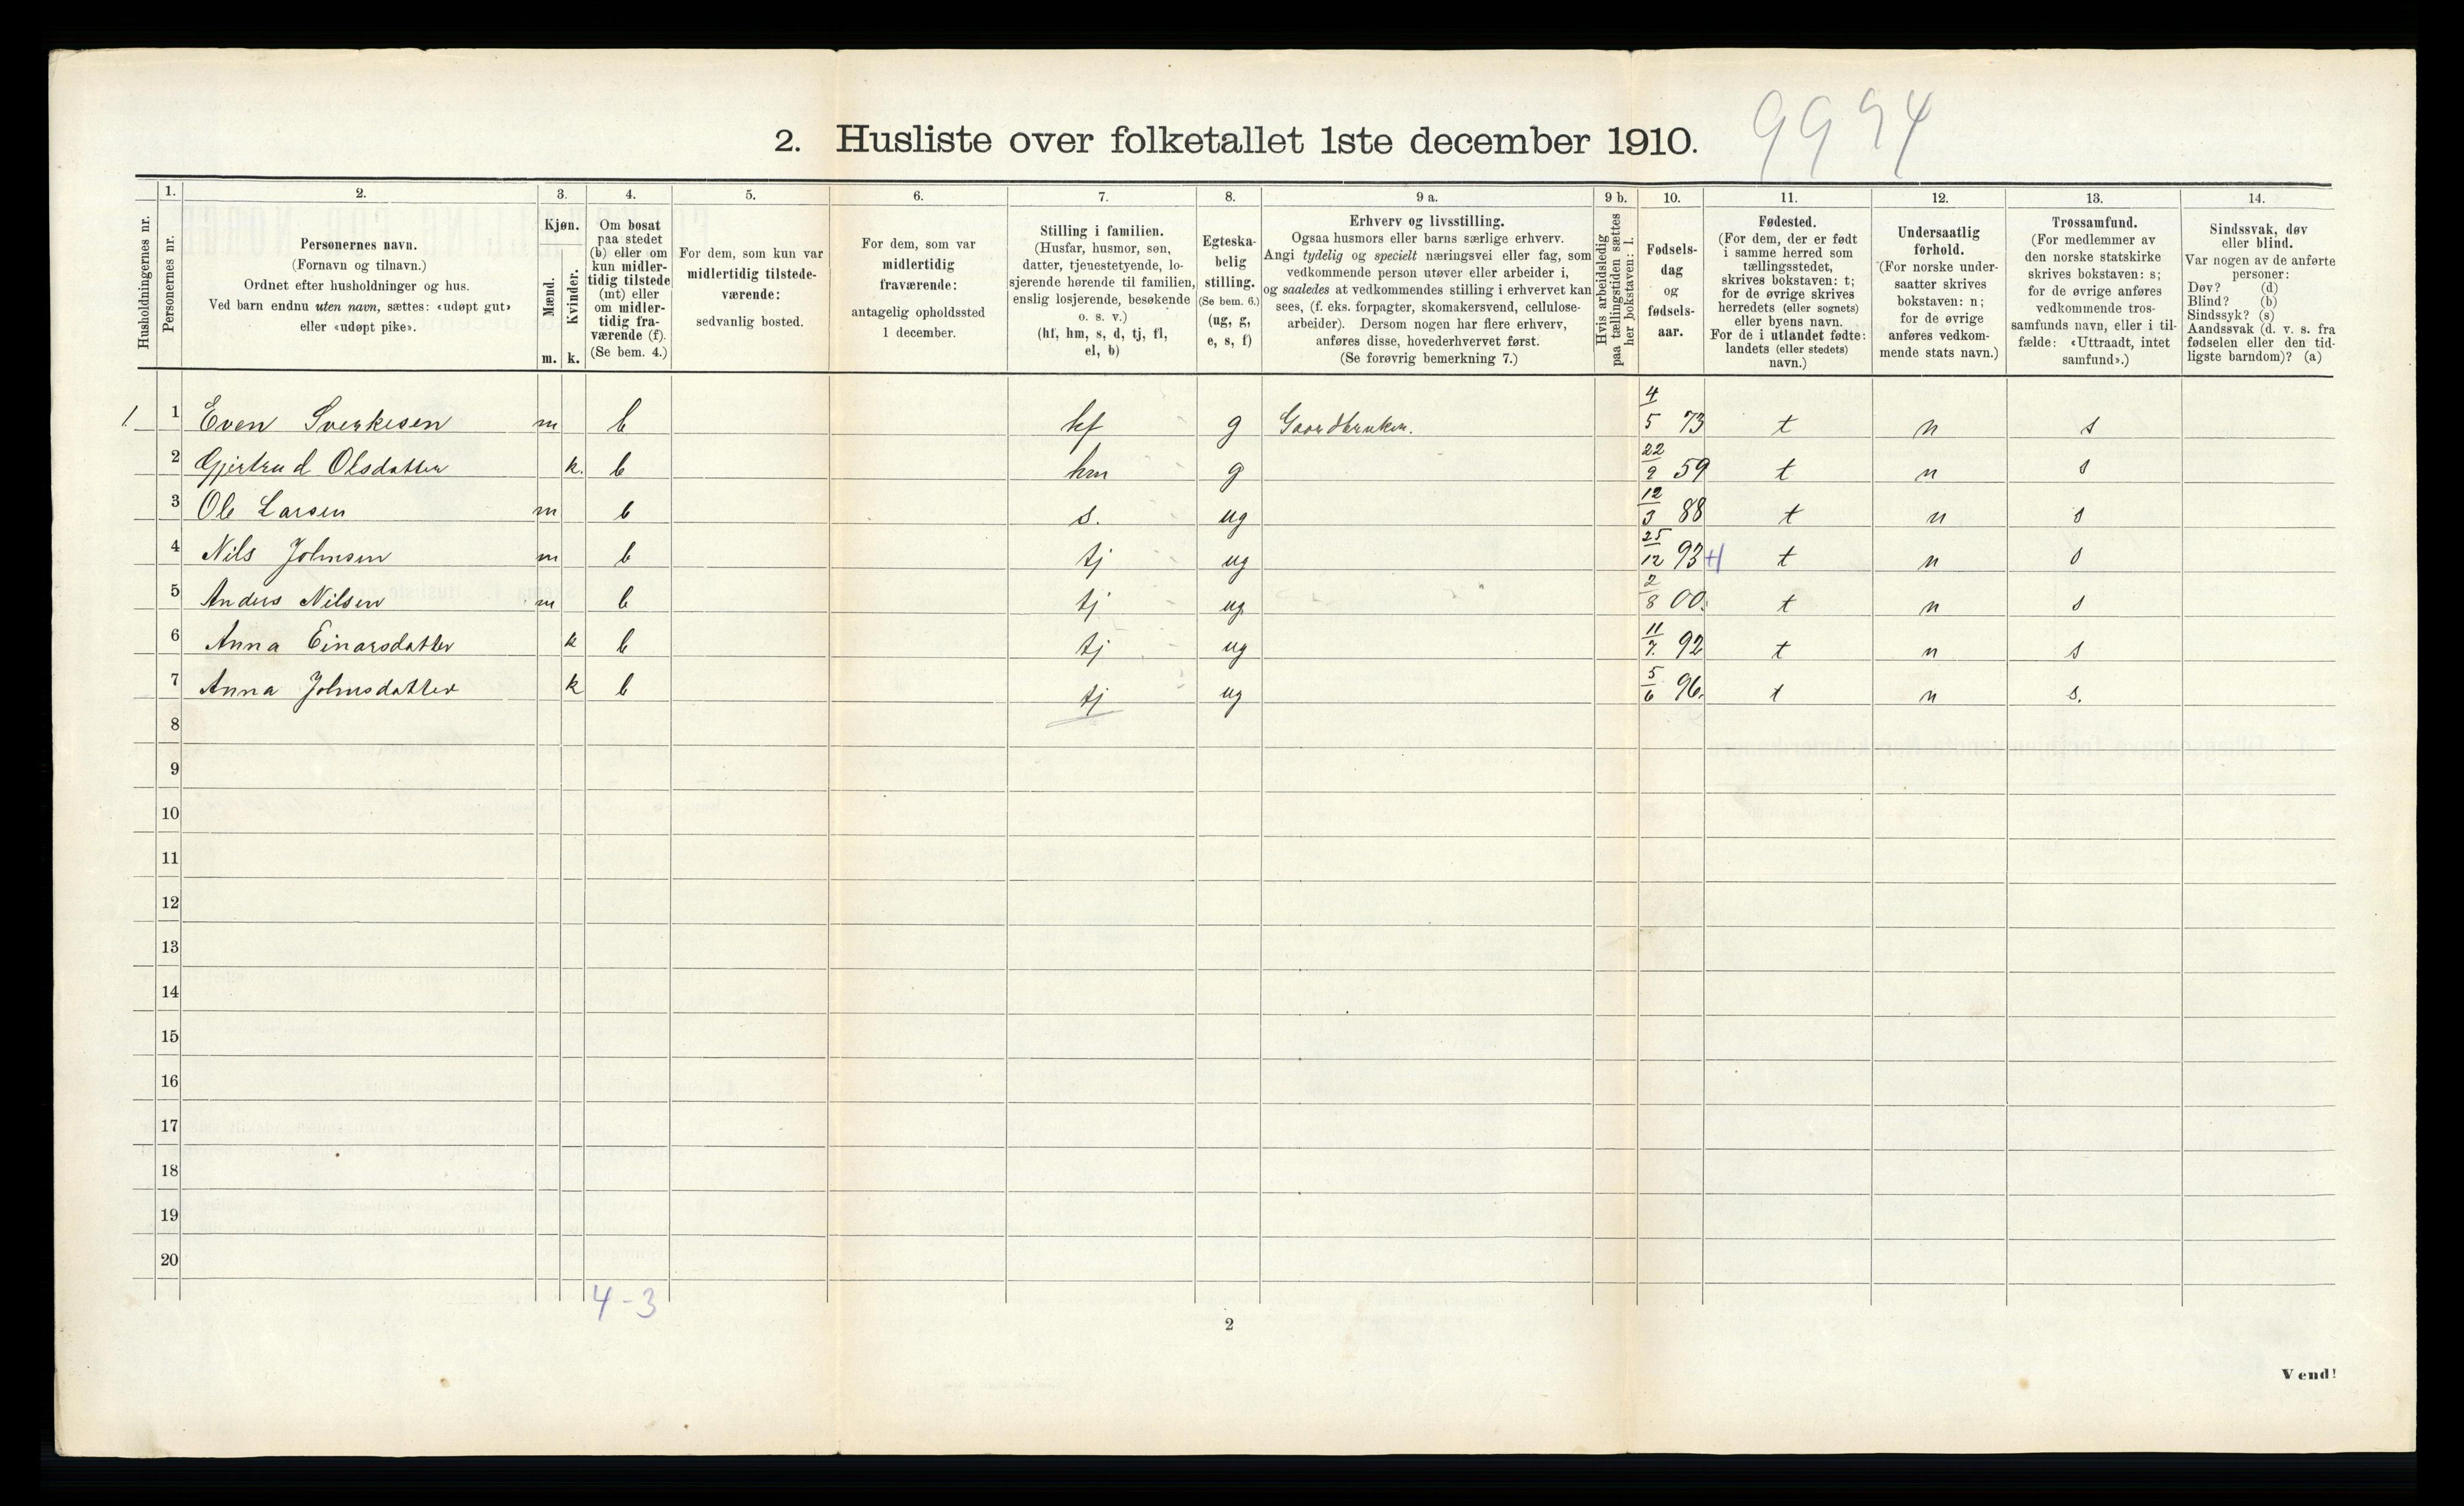 9994
2. Husliste over folketallet 1ste december 1910.
Husholdningernes nr.
1.
Personernes nr.
2.
Personernes navn.
(Fornavn og tilnavn.)
Ordnet efter husholdninger og hus.
Ved barn endnu uten navn, sættes: «udøpt gut»
eller «udøpt pike».
3.
Kjøn.
Mænd.
Kvinder.
m. k.
4.
Om bosat
paa stedet
(b) eller om
kun midler-
tidig tilstede
(mt) eller
om midler-
tidig fra-
værende (f).
(Se bem. 4.)
5.
For dem, som kun var
midlertidig tilstede-
værende:
sedvanlig bosted.
6.
For dem, som var
midlertidig
fraværende:
antagelig opholdssted
1 december.
7.
Stilling i familien.
(Husfar, husmor, søn,
datter, tjenestetyende, lo-
sjerende hørende til familien,
enslig losjerende, besøkende
o. s. v.)
(hf, hm, s, d, tj, fl,
el, b)
8.
Egteska-
belig
stilling.
(Se bem. 6.)
(ug, g,
e, s, f)
9 a.
Erhverv og livsstilling.
Ogsaa husmors eller barns særlige erhverv.
Angi tydelig og specielt næringsvei eller fag, som
vedkommende person utøver eller arbeider i,
og saaledes at vedkommendes stilling i erhvervet kan
sees, (f. eks. forpagter, skomakersvend, cellulose-
arbeider). Dersom nogen har flere erhverv,
anføres disse, hovederhvervet først.
(Se forøvrig bemerkning 7.)
9 b.
Hvis arbeidsledig
paa tællingstiden sættes
her bokstaven: l.
10.
Fødsels-
dag
og
fødsels-
aar.
11.
Fødested.
(For dem, der er født
i samme herred som
tællingsstedet,
skrives bokstaven: t;
for de øvrige skrives
herredets (eller sognets)
eller byens navn.
For de i utlandet fødte:
landets (eller stedets)
navn.)
12.
Undersaatlig
forhold.
(For norske under-
saatter skrives
bokstaven: n;
for de øvrige
anføres vedkom-
mende stats navn.)
13.
Trossamfund.
(For medlemmer av
den norske statskirke
skrives bokstaven: s;
for de øvrige anføres
vedkommende tros-
samfunds navn, eller i til-
fælde: «Uttraadt, intet
samfund».)
14.
Sindssvak, døv
eller blind.
Var nogen av de anførte
personer:
Døv? (d)
Blind? (b)
Sindssyk? (s)
Aandssvak (d. v. s. fra
fødselen eller den tid-
ligste barndom)? (a)
1. 1 Even Sverkesen m b hf g Gaardbruker. 4/5 73 t n s
2 Gjertrud Olsdatter k. b hm g 22/9 59 t n s
3 Ole Larsen m b s. ug 12/3 88 t n s
4 Nils Johnsen m b tj ug 25/12 93 + t n s
5 Anders Nilsen m b tj ug 2/8 00. t n s
6 Anna Einarsdatter k b tj ug 11/7. 92 t n s
7 Anna Johnsdatter k b tj ug 5/6 96. t n s.
8
9
10
11
12
13
14
15
16
17
18
19
20
4-3
2
Vend!